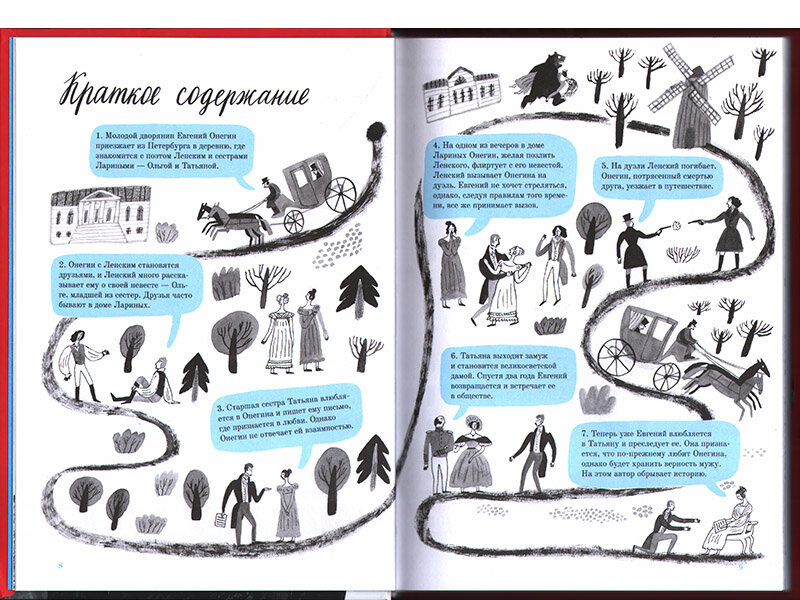 Краткое содержание
1. Молодой дворянин Евгений Онегин
приезжает из Петербурга в деревню, где
знакомится с поэтом Ленским и сестрами
Лариными — Ольгой и Татьяной.
2. Онегин с Ленским становятся
друзьями, и Ленский много расска-
зывает ему о своей невесте — Оль-
ге, младшей из сестер. Друзья часто
бывают в доме Лариных.
3. Старшая сестра Татьяна влюбля-
ется в Онегина и пишет ему письмо,
где признается в любви. Однако
Онегин не отвечает ей взаимностью.
8
4. На одном из вечеров в доме
Лариных Онегин, желая позлить
Ленского, флиртует с его невестой.
Ленский вызывает Онегина на
дуэль. Евгений не хочет стреляться,
однако, следуя правилам того време-
ни, все же принимает вызов.
5. На дуэли Ленский погибает.
Онегин, потрясенный смертью
друга, уезжает в путешествие.
6. Татьяна выходит замуж
и становится великосветской
дамой. Спустя два года Евгений
возвращается и встречает ее
в обществе.
7. Теперь уже Евгений влюбляется
в Татьяну и преследует ее. Она призна-
ется, что по-прежнему любит Онегина,
однако будет хранить верность мужу.
На этом автор обрывает историю.
9